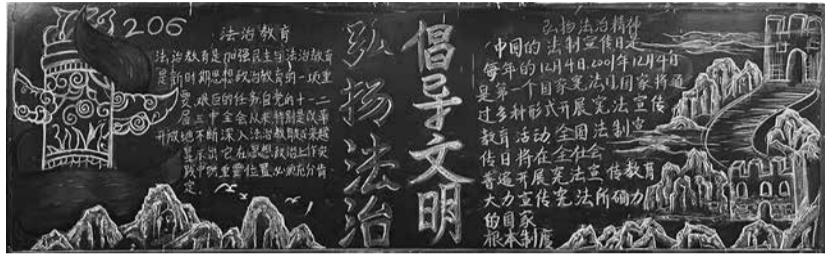 206
法治教育
法治教育是加强民主与法治教育
是新时期思想政治教育的一项重
要、艰巨的任务自党的十一
届三中全会从来特别是改革
开放地不断深入法治教育成果越
显示出它在思想政治工作实
践中既重要位置必须充分肯
定.
弘扬法治
倡导文明
弘扬法治精神
中国的法制宣传日是
每年的12月4日.2001年12月4日
是第一个国家宪法日国家将通
过多种形式开展宪法宣传
教育活动全国法制宣
传日将在全社会
普遍开展宪法宣传教育
大力宣传宪法所确力
的国家
根本制度